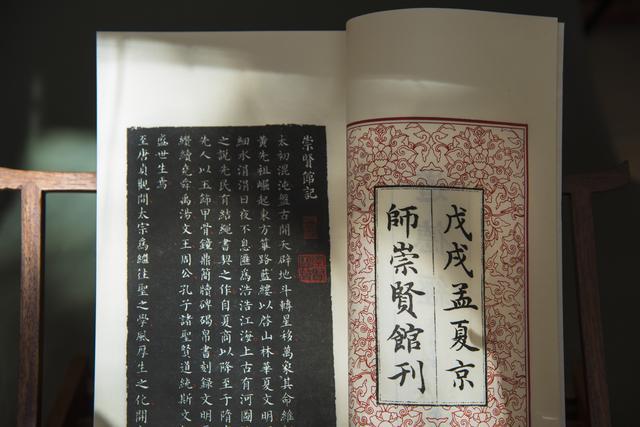 戊戌孟夏京
師崇賢館刊
崇賢館記
太初混沌盤古開天辟地斗轉星移萬家其命維
黃先祖崛起東方篳路藍縷以啓山林華夏文明
細水涓涓日夜不息匯爲浩浩江海上古有河圖
之説先民有結繩書契之作自夏商以降至于隋
先人以玉甲骨鐘鼎簡牘碑碣帛書刻錄文明
續堯舜禹湯文王周公孔子諸聖道統斯文
盛世生焉
至唐貞觀間太宗爲繼往聖之學風厚生之化開